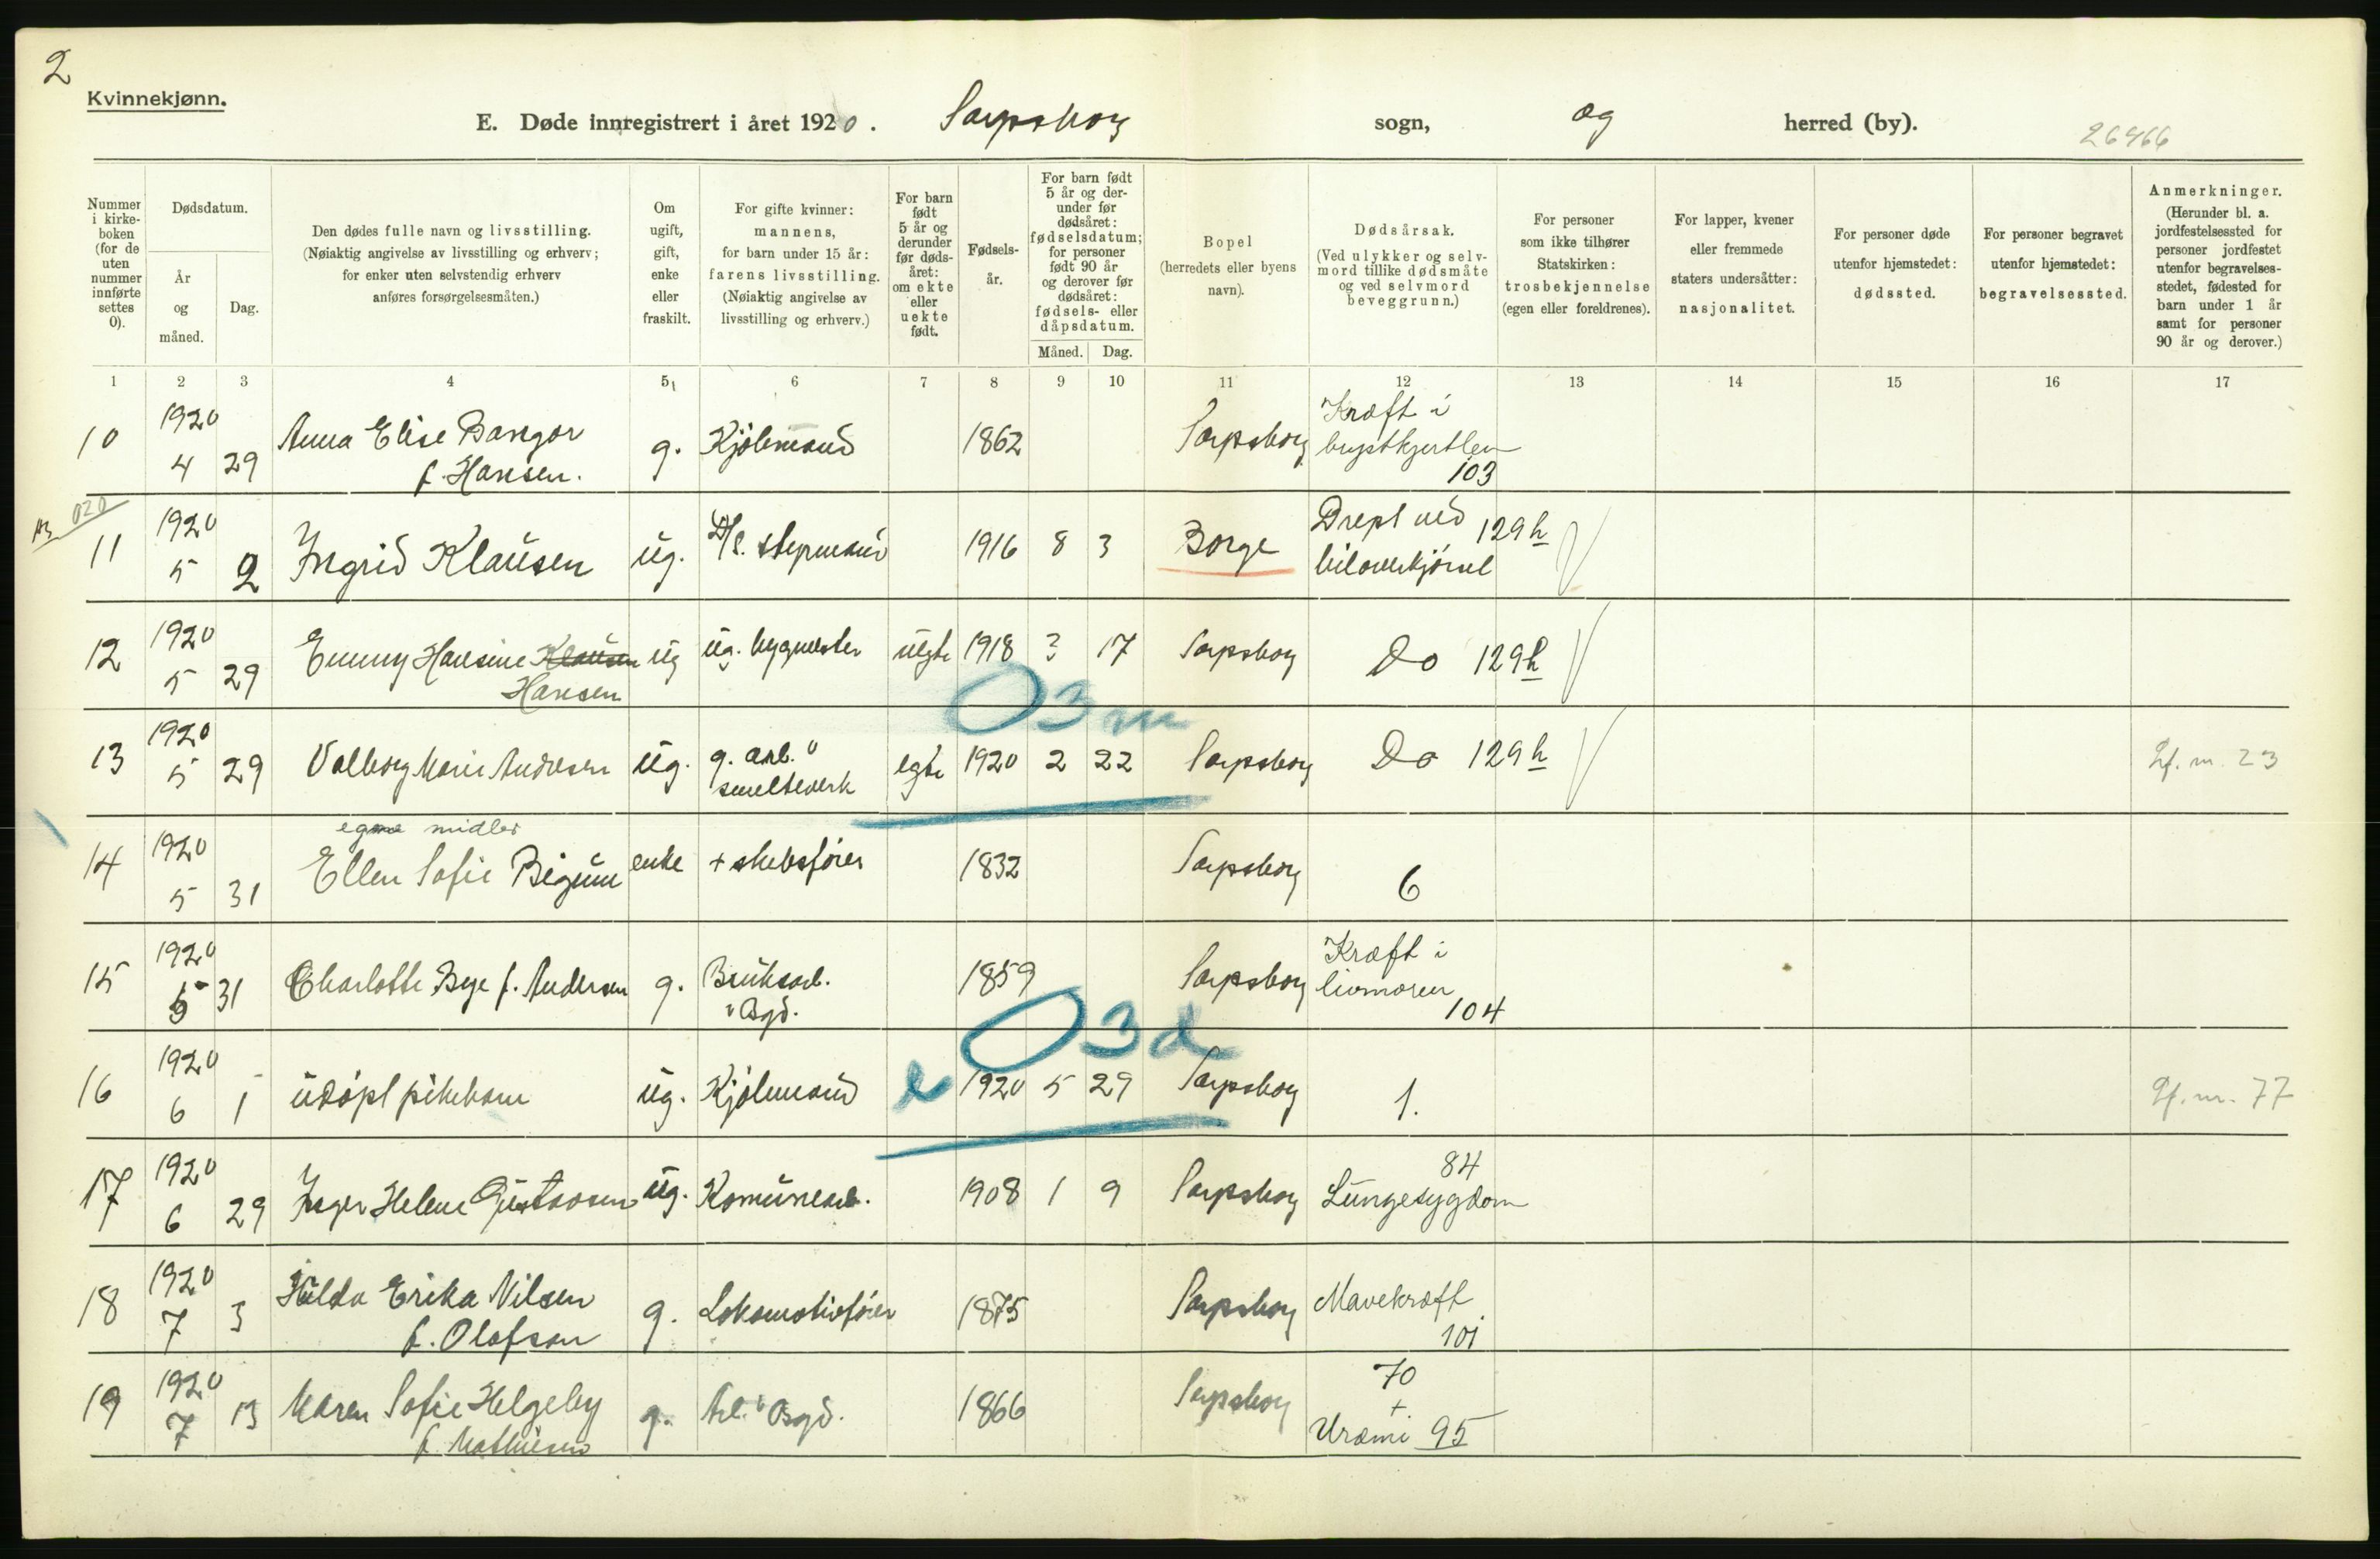 2
Kvinnekjønn.
E. Døde innregistrert i året 1920. Sarpsborg sogn, og herred (by).
26466
Nummer i kirke-boken (for de uten nummer innførte settes 0).
Dødsdatum.
År og måned.
Dag.
Den dødes fulle navn og livsstilling.
(Nøiaktig angivelse av livsstilling og erhverv; for enker uten selvstendig erhverv anføres forsørgelsesmåten.)
Om ugift, gift, enke eller fraskilt.
For gifte kvinner: mannens, for barn under 15 år: farens livsstilling.
(Nøiaktig angivelse av livsstilling og erhverv.)
For barn født 5 år og derunder før døds-året: om ekte eller uekte født.
Fødsels-år.
For barn født 5 år og der-under før dødsåret: fødselsdatum; for personer født 90 år og derover før dødsåret: fødsels- eller dåpsdatum.
Måned. Dag.
Bopel (herredets eller byens navn).
Dødsårsak.
(Ved ulykker og selv-mord tillike dødsmåte og ved selvmord beveggrunn.)
For personer som ikke tilhører Statskirken: trosbekjennelse (egen eller foreldrenes).
For lapper, kvener eller fremmede staters undersåtter: nasjonalitet.
For personer døde utenfor hjemstedet: dødssted.
For personer begravet utenfor hjemstedet: begravelsessted.
Anmerkninger.
(Herunder bl. a. jordfestelsessted for personer jordfestet utenfor begravelses-stedet, fødested for barn under 1 år samt for personer 90 år og derover.)
1 2 3 4 5 6 7 8 9 10 11 12 13 14 15 16 17
10 1920 4 29 Anna Elise Bangor f. Hansen. g. Kjøbmand 1862 Sarpsborg Kræft i brystkjertlen 103
020
11 1920 5 2 Ingrid Klausen ug. D/S. styrmand 1916 8 3 Borge Drept ved biloverkjørsel 129h
12 1920 5 29 Emmy Hansine Klausen Hansen ug ug. bygmester uegte 1918 3 17 Sarpsborg Do 129h
03 m
13 1920 5 29 Valborg Marie Andresen ug. g. arb. i smelteverk egte 1920 2 22 Sarpsborg Do 129h Lf. nr. 23
egne midler
14 1920 5 31 Ellen Sofie Bigum enke + skibsfører 1832 Sarpsborg 6
15 1920 5 31 Charlotte Bye f. Andersen g. Bruksarb. i Bgd. 1859 Sarpsborg Kræft i livmoren 104
03 d
16 1920 6 1 udøpt pikebarn ug. Kjøbmand e 1920 5 29 Sarpsborg 1. Lf. nr. 77
17 1920 6 29 Inger Helene Gustavsen ug. Komunearb. 1908 1 9 Sarpsborg 84 Lungesygdom
18 1920 7 3 Hulda Erika Nilsen f. Olofson g. Lokomotivfører 1875 Sarpsborg Mavekræft 101
19 1920 7 13 Maren Sofie Helgeby f. Mathiesen g. Arb. i Bgd. 1866 Sarpsborg 70 + Uræmi 95